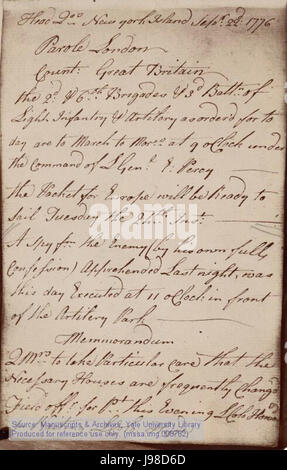 Head Qrs. New york Island Sepr. 22d. 1776
Parole London
Countn. Great Britain
the 2d. & 6th Brigades & 3d Battn. of
Light Infantry & Artilery as orderd for to
day are to March to Morw. at 9 oClock under
the Command of Lt Genl. E. Percy
the Packet for Europe will be Ready to
Sail Tuesday the 24th Inst.
A Spy fm. the Enemy (by his own full
Confession) Apprehended Last night, was
this day Executed at 11 oClock in front
of the Artilery Park
Memorandum
Q Mrs. to take Particular Care that the
Necessary Houses are frequently Changd
Field offr. for Pt. this Evening Lt Colo.
Source: Manuscripts & Archives, Yale University Library
Produced for reference use only. (mssa.img.009762)
alamy
alamy
Image ID: J98D6D
www.alamy.com